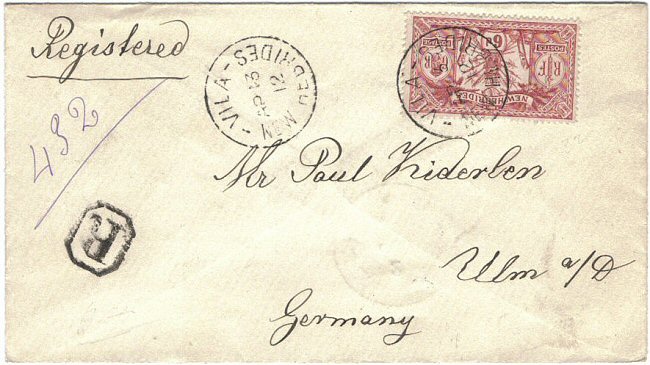 Registered
492
VILA - NEW HEBRIDES
AP 13
12
6d
POSTES POSTAGE
RF
NEW HEBRIDES
VILA
R
Mr Paul Kiderlen
Ulm a/D
Germany